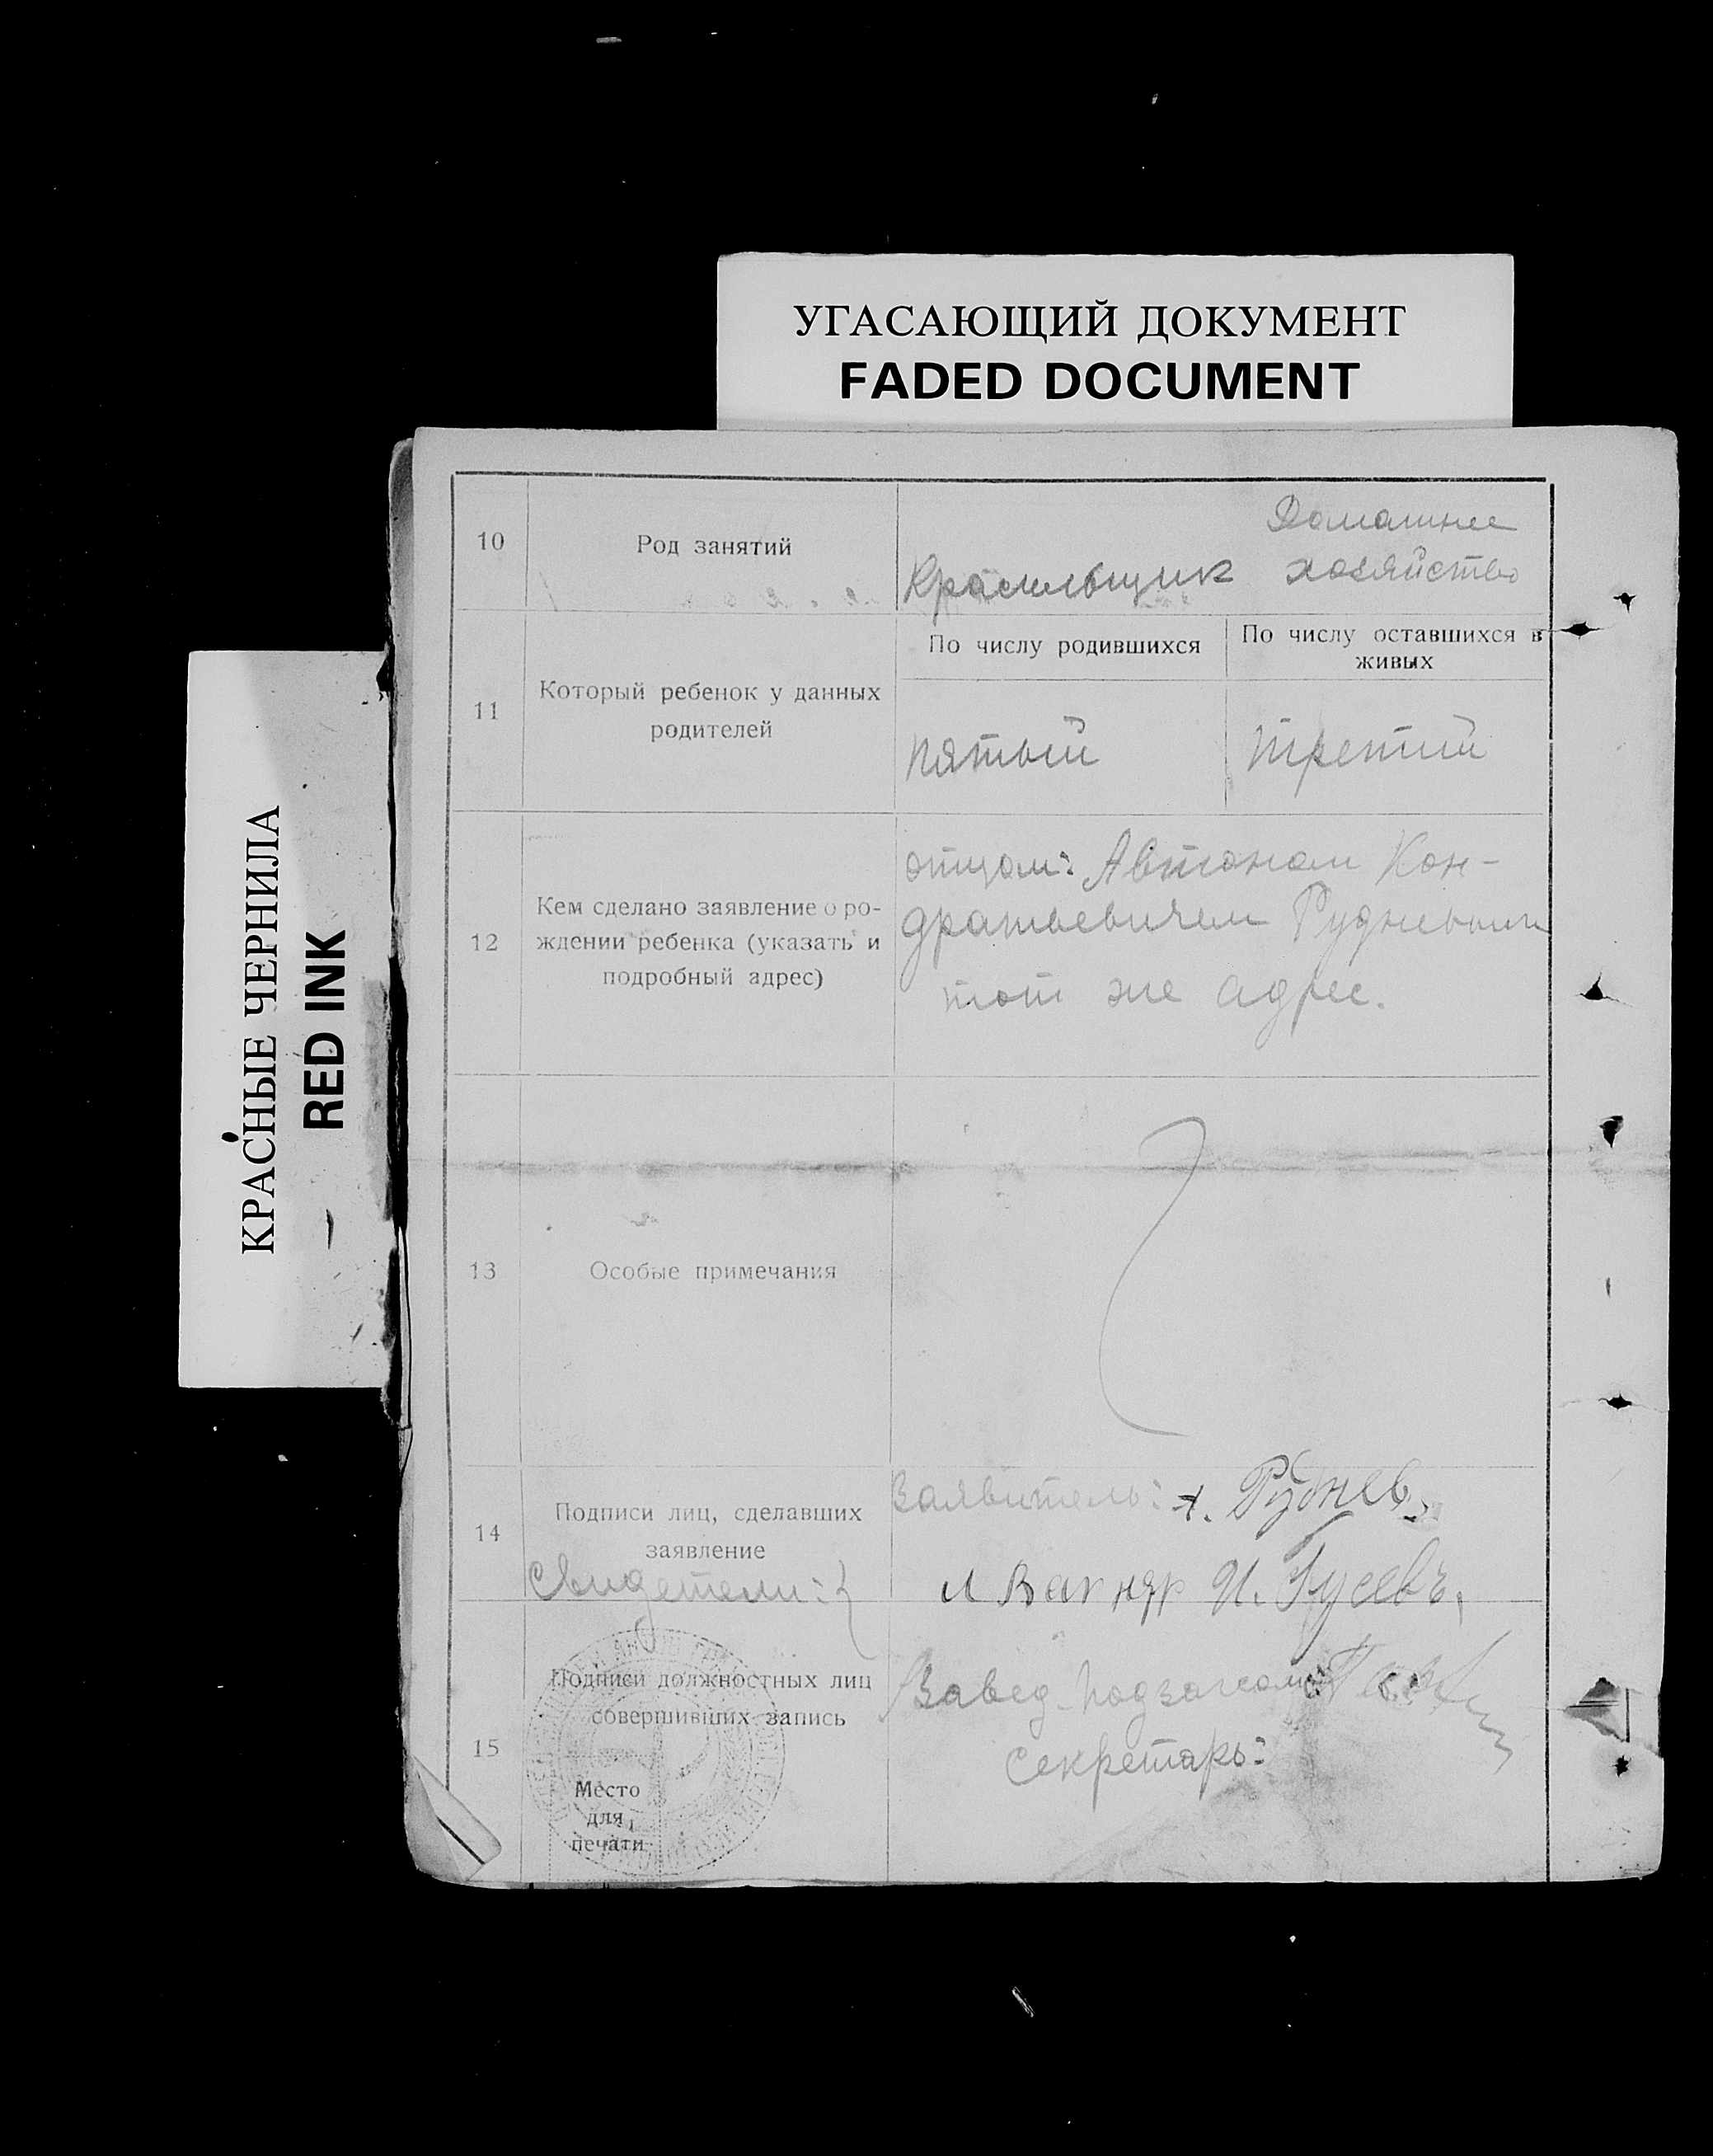 УГАСАЮЩИЙ ДОКУМЕНТ
FADED DOCUMENT
КРАСНЫЕ ЧЕРНИЛА
RED INK
10
Род занятий
Домашнее
Красильщик хозяйство
11
Который ребенок у данных
родителей
По числу родившихся
По числу оставшихся в
живых
пятый
третий
12
Кем сделано заявление о ро-
ждении ребенка (указать и
подробный адрес)
отцом: Автоном Кон-
дратьевичем Рудневым
тот же адрес.
13
Особые примечания
14
Подписи лиц, сделавших
заявление
Свидетели:
Заявитель: А. Руднев
И. Гусевъ.
15
Подписи должностных лиц
совершивших запись
Место
для
печати
Завед.
Секретарь: